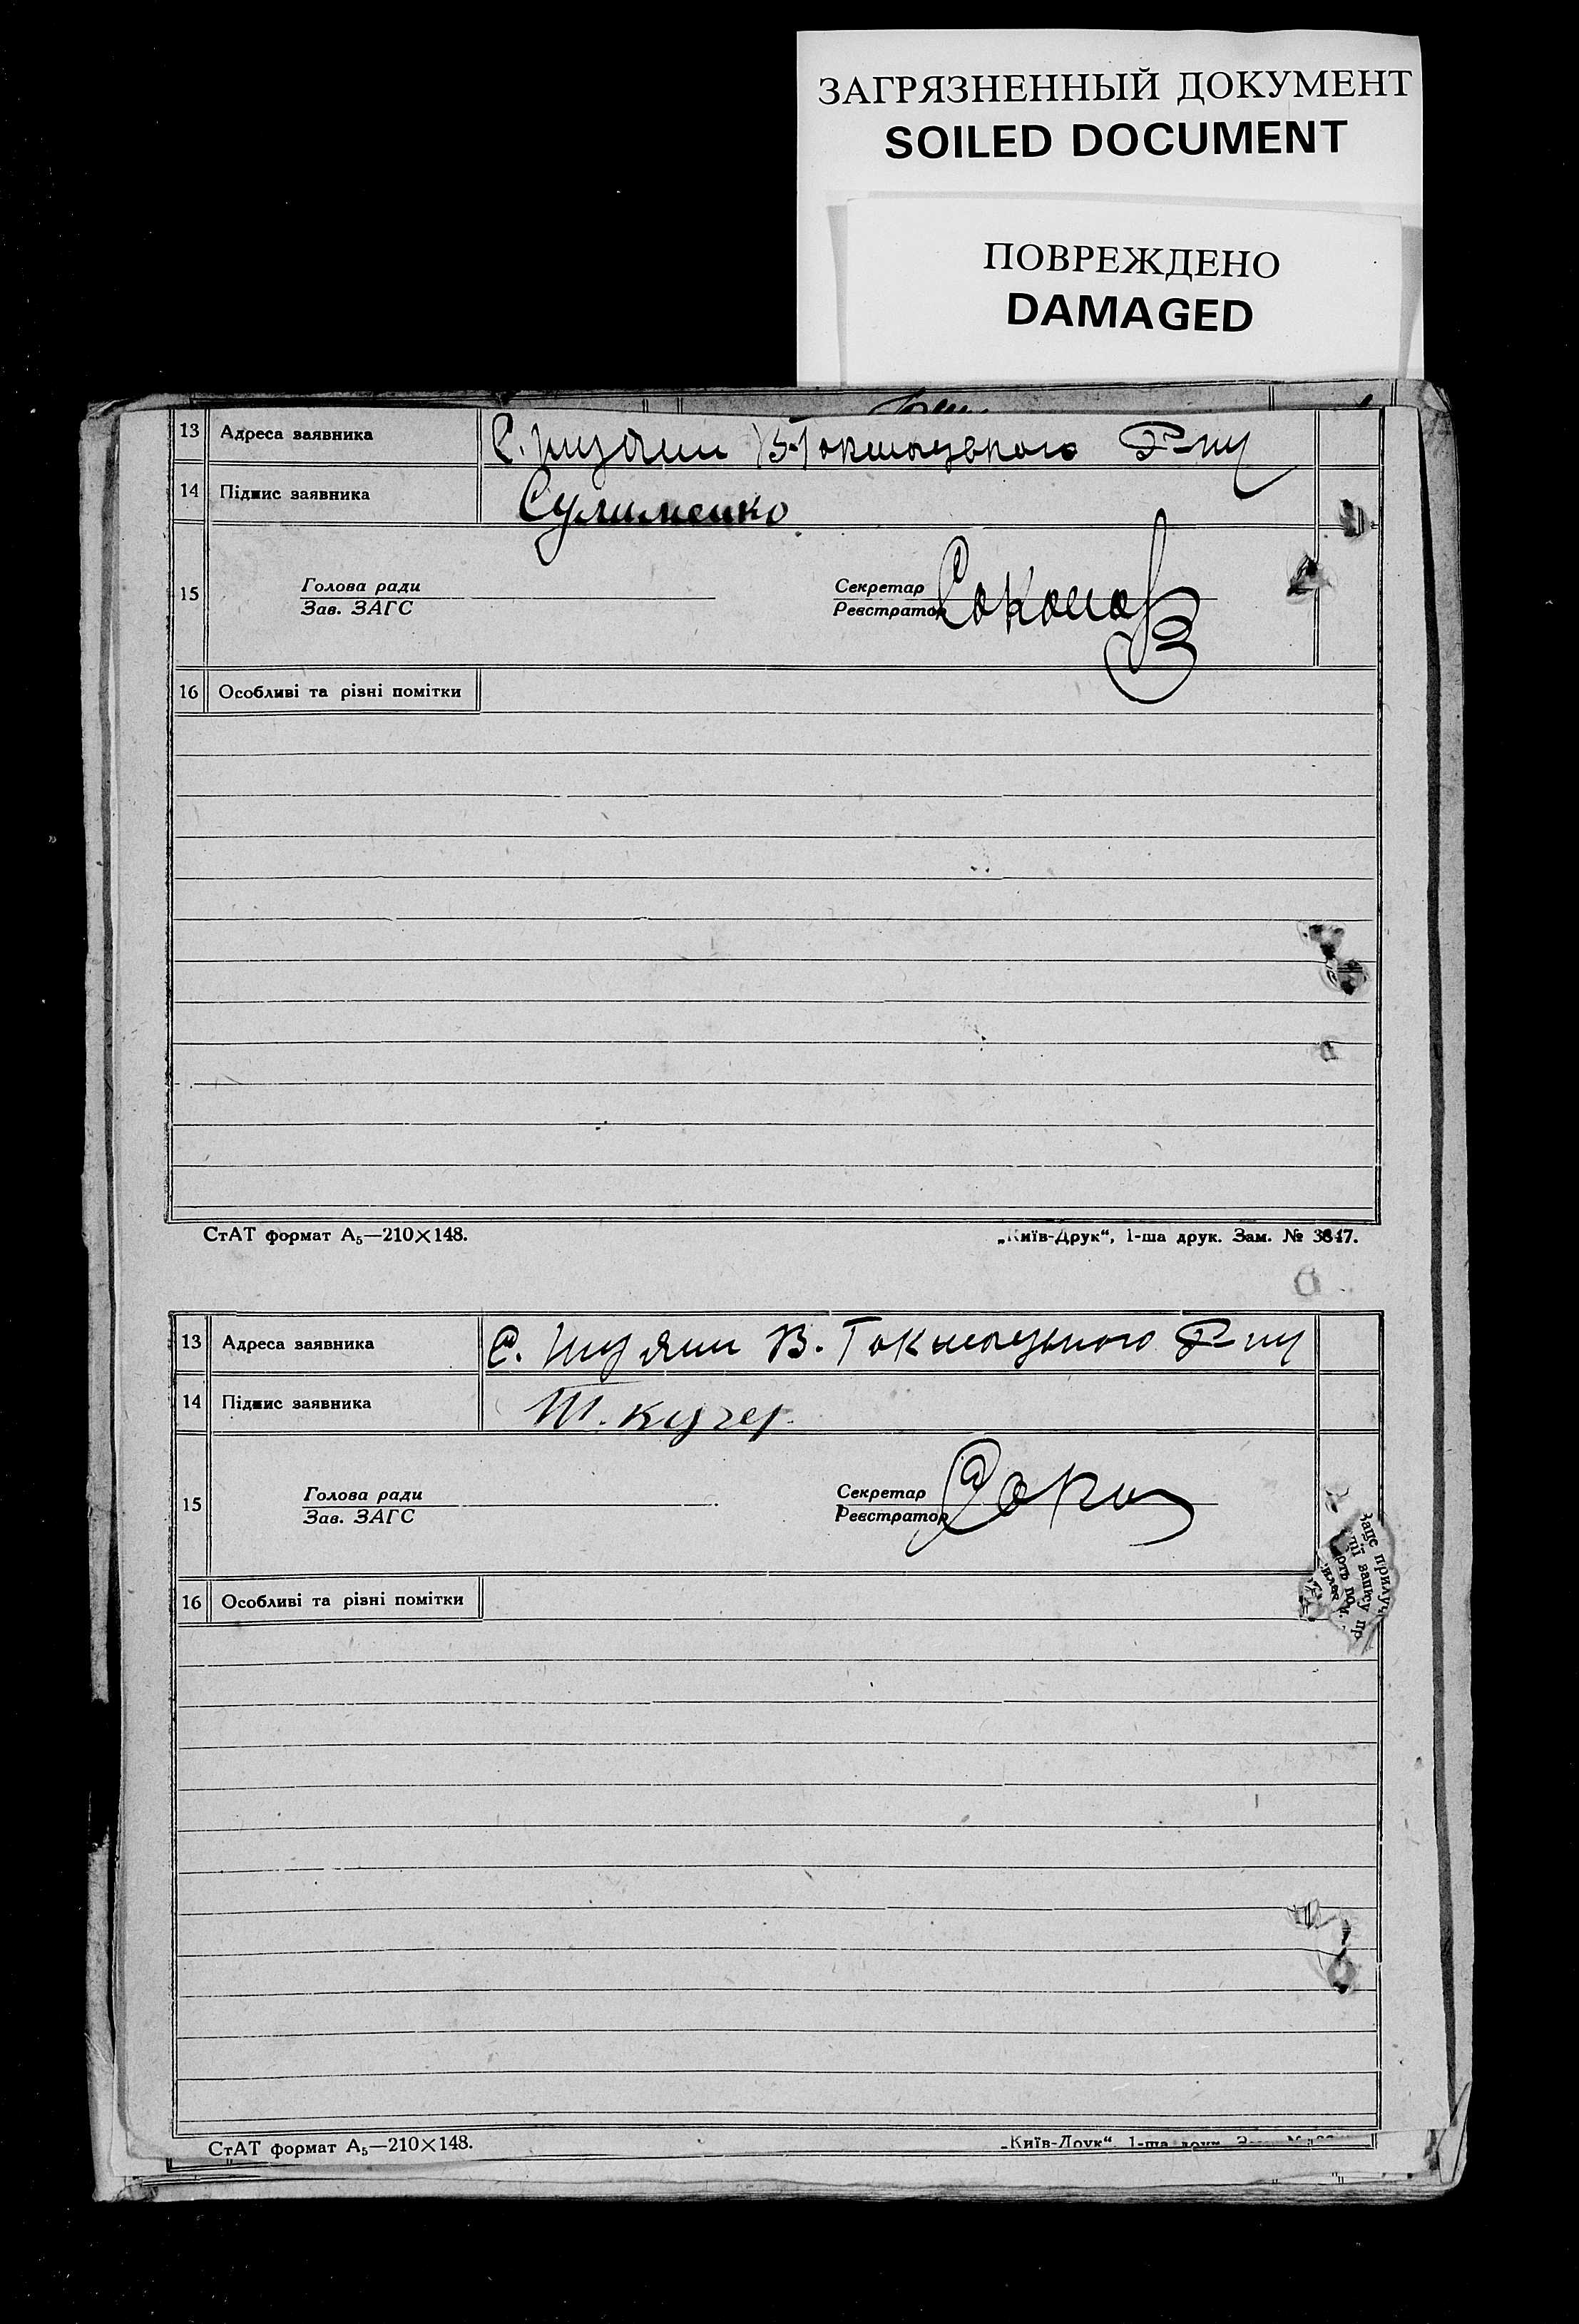 ЗАГРЯЗНЕННЫЙ ДОКУМЕНТ
SOILED DOCUMENT
ПОВРЕЖДЕНО
DAMAGED
13 Адреса заявника С. В-Токмацького Р-ну
14 Підпис заявника Сулименко
Голова ради Секретар
15 Соколов
Зав. ЗАГС Реєстратор
16 Особливі та різні помітки
СтАТ формат А5—210×148. „Київ-Друк“, 1-ша друк. Зам. № 3847.
13 Адреса заявника С. В. Токмацького Р-ну
14 Підпис заявника Т. Кучер.
Голова ради Секретар
15 Соко
Зав. ЗАГС Реєстратор
16 Особливі та різні помітки
запису
СтАТ формат А5—210×148. „Київ-Друк“, 1-ша друк.